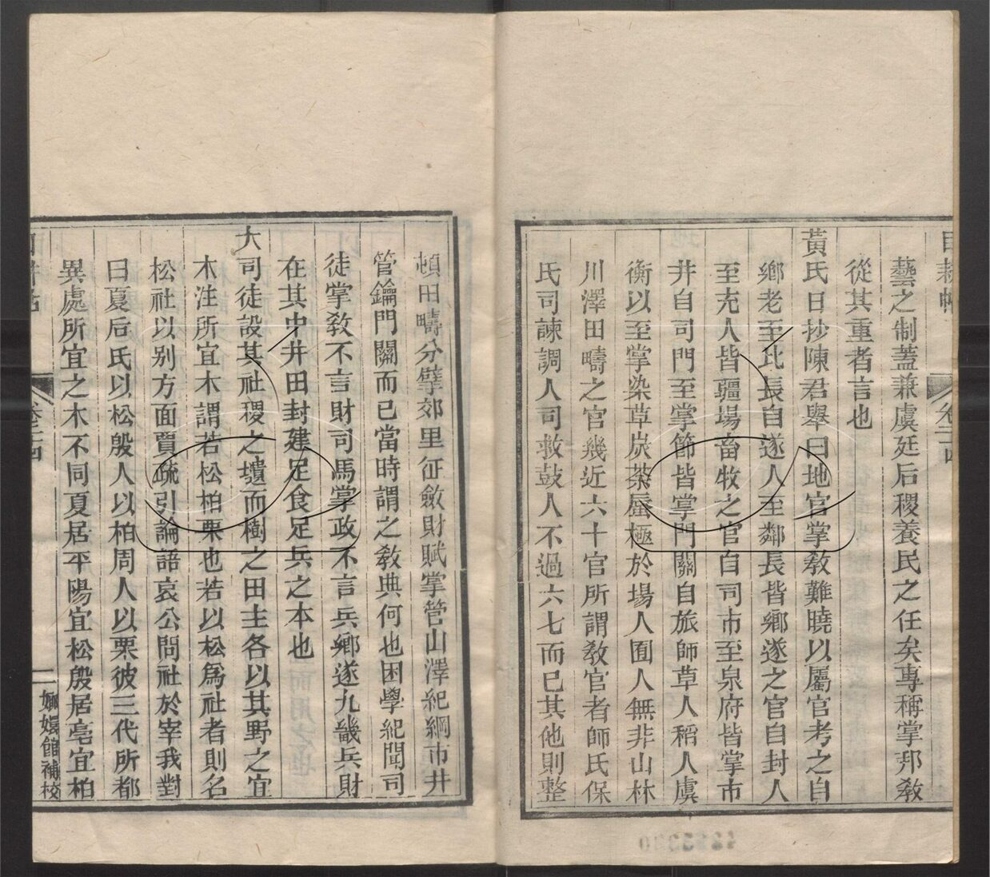 藝之制蓋兼虞廷后稷養民之任矣專稱掌邦敎
從其重者言也
黃氏日抄陳君舉曰地官掌敎難曉以屬官考之自
鄉老至比長自遂人至鄰長皆鄉遂之官自封人
至充人皆疆場畜牧之官自司市至泉府皆掌市
井自司門至掌節皆掌門關自旅師草人稻人虞
衡以至掌染草炭荼蜃極於場人囿人無非山林
川澤田疇之官幾近六十官所謂敎官者師氏保
氏司諫調人司救鼓人不過六七而已其他則整
頓田疇分擘郊里征斂財賦掌管山澤紀綱市井
管鑰門關而已當時謂之敎典何也困學紀聞司
徒掌敎不言財司馬掌政不言兵鄉遂九畿兵財
在其中井田封建足食足兵之本也
大司徒設其社稷之壝而樹之田主各以其野之宜
木注所宜木謂若松柏栗也若以松爲社者則名
松社以别方面賈疏引論語哀公問社於宰我對
曰夏后氏以松殷人以柏周人以栗彼三代所都
異處所宜之木不同夏居平陽宜松殷居亳宜柏
嫏嬛館補校